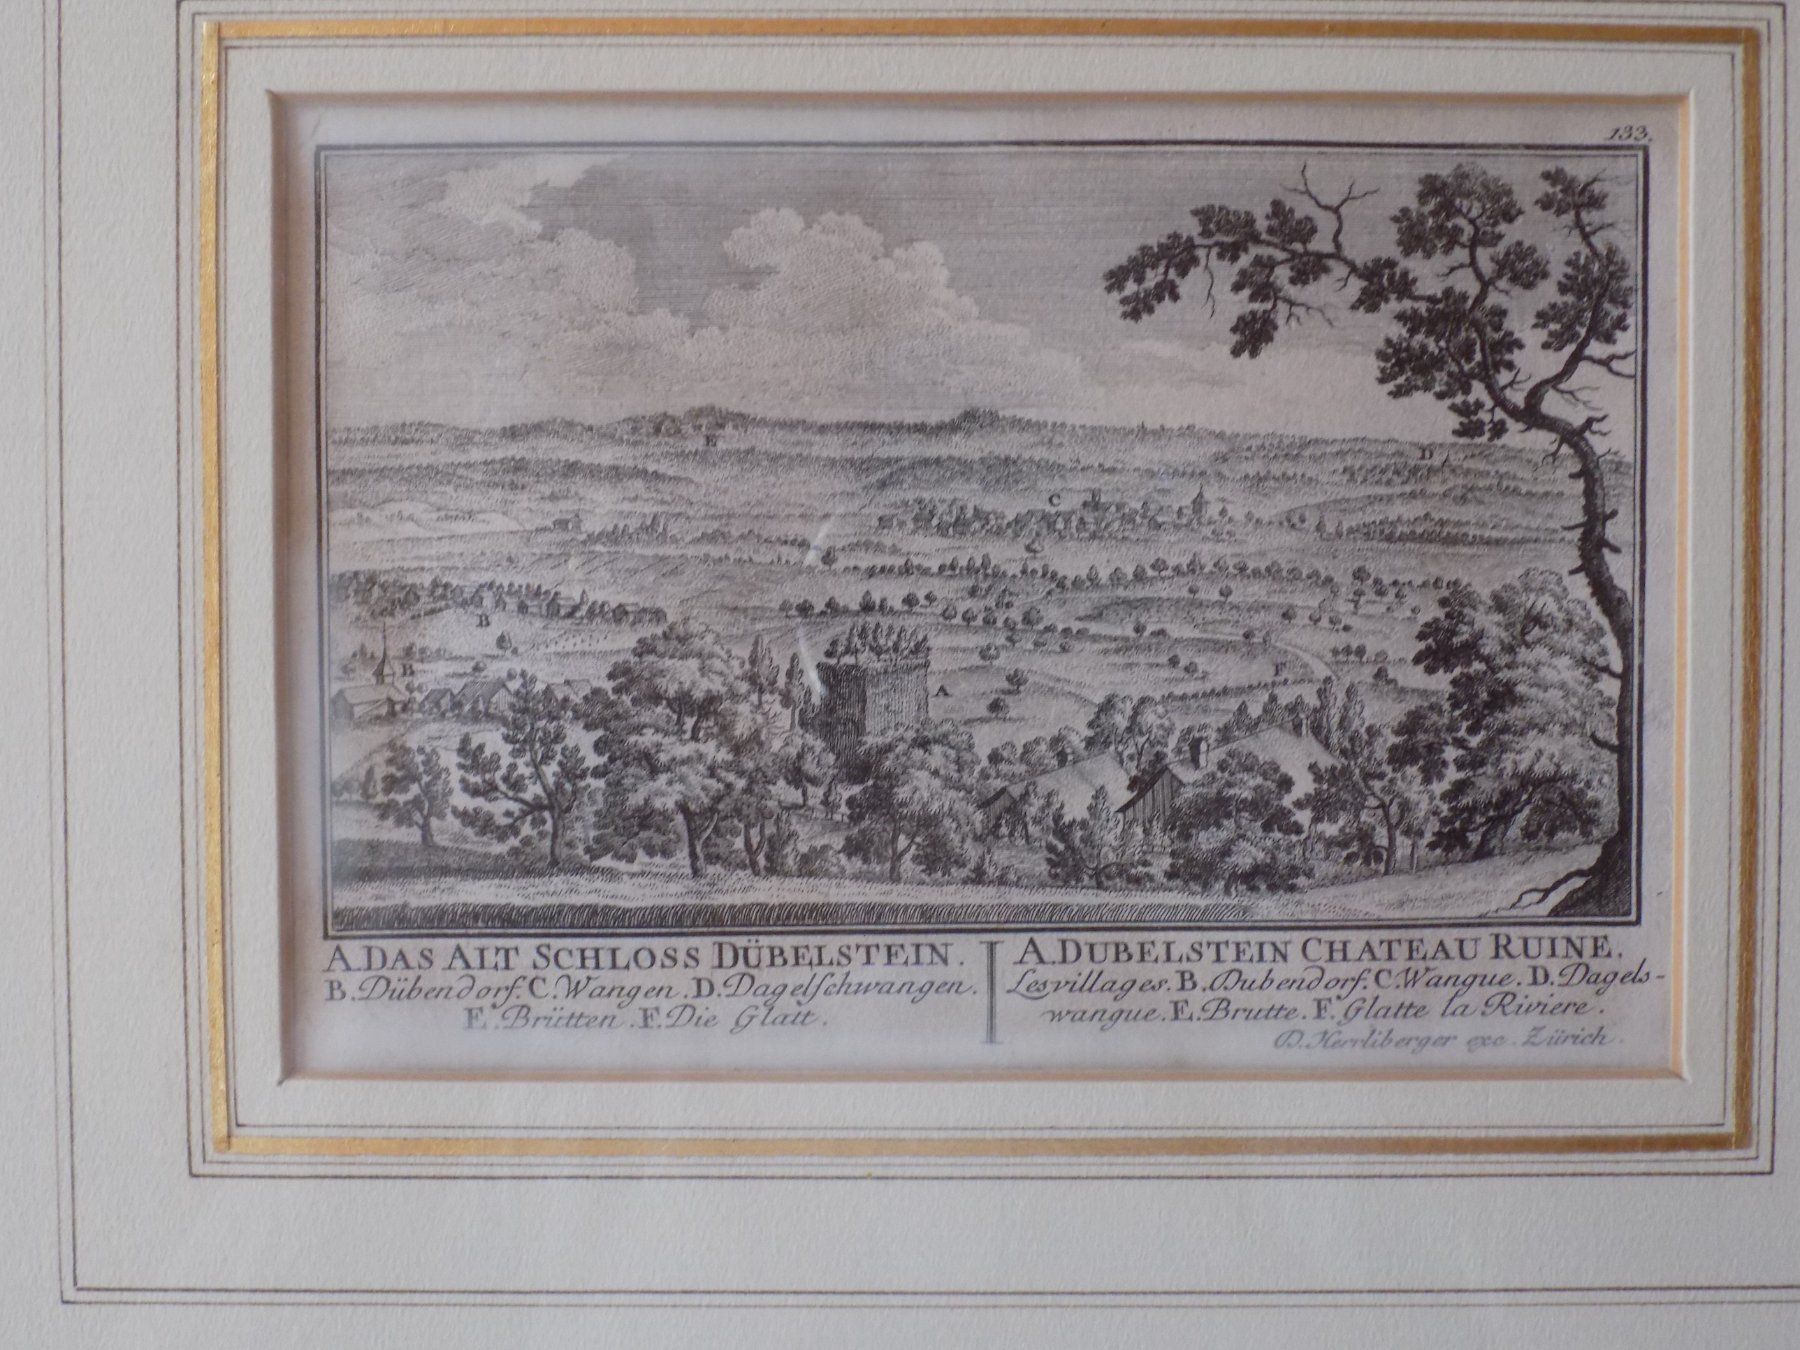 133.
E
D
C
B
B
A
F
A. DAS ALT SCHLOSS DÜBELSTEIN.
B. Dübendorf. C. Wangen. D. Dagelſchwangen.
E. Brütten. F. Die Glatt.
A. DUBELSTEIN CHATEAU RUINE.
Les villages. B. Dubendorf. C. Wangue. D. Dagels-
wangue. E. Brutte. F. Glatte la Riviere.
D. Herrliberger exc. Zürich.